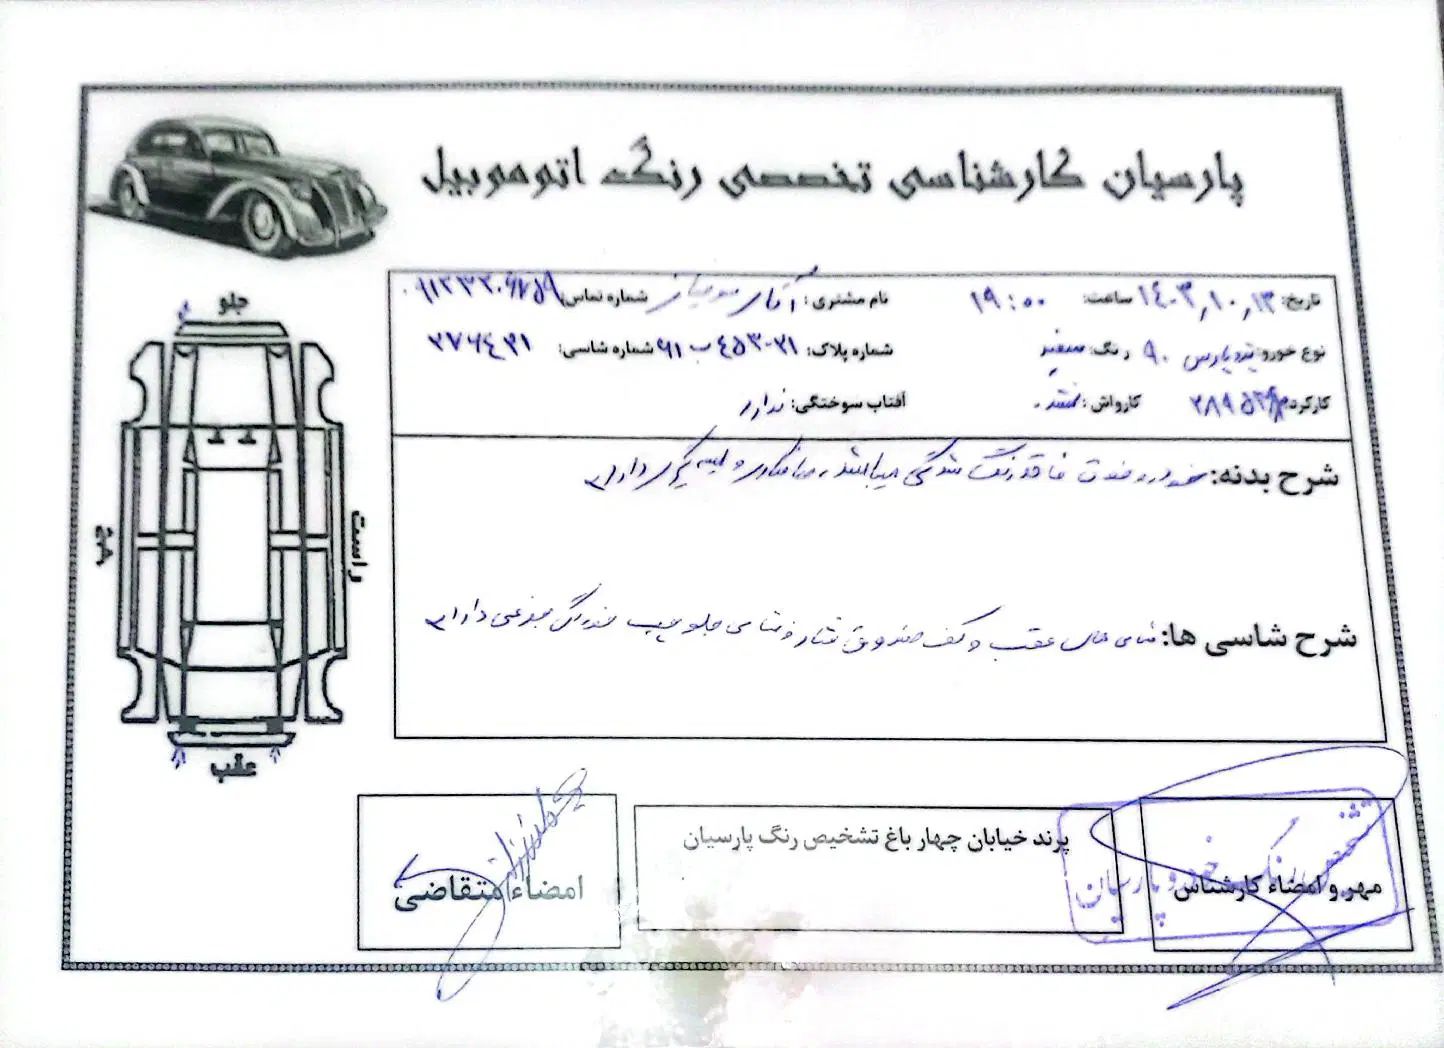 پارسیان کارشناسی تخصصی رنگ اتوموبیل
تاریخ: ۱۴۰۳,۱۰,۱۳ ساعت: ۱۹:۰۰ نام مشتری: آقای شماره تماس:
نوع خورو: پژو پارس ۹۰ رنگ: سفید شماره پلاک: ب ۶۱ شماره شاسی:
کارکرد: کارواش: نشده. آفتاب سوختگی: ندارد
شرح بدنه: خودرو فوق فاقد رنگ شدگی میباشد، صافکاری و لیسه گیری دارد
شرح شاسی ها: عقب و کف صندوق جلو چپ خوردگی جزعی دارد
جلو
راست
چپ
عقب
مهر و امضاء کارشناس
تشخیص رنگ خودرو پارسیان
پرند خیابان چهار باغ تشخیص رنگ پارسیان
امضاء متقاضی